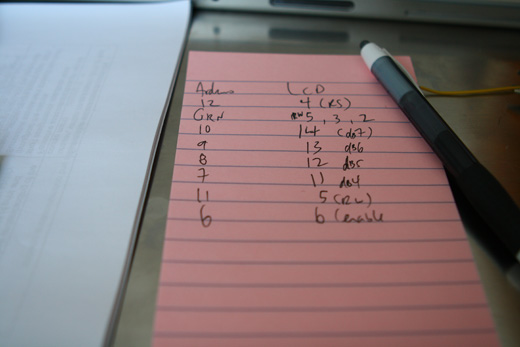 LCD
12 4 (RS)
GRN 5, 3, 2
10 14 (db7)
9 13 db6
8 12 db5
7 11 db4
11 5 (RW)
6 6 (enable